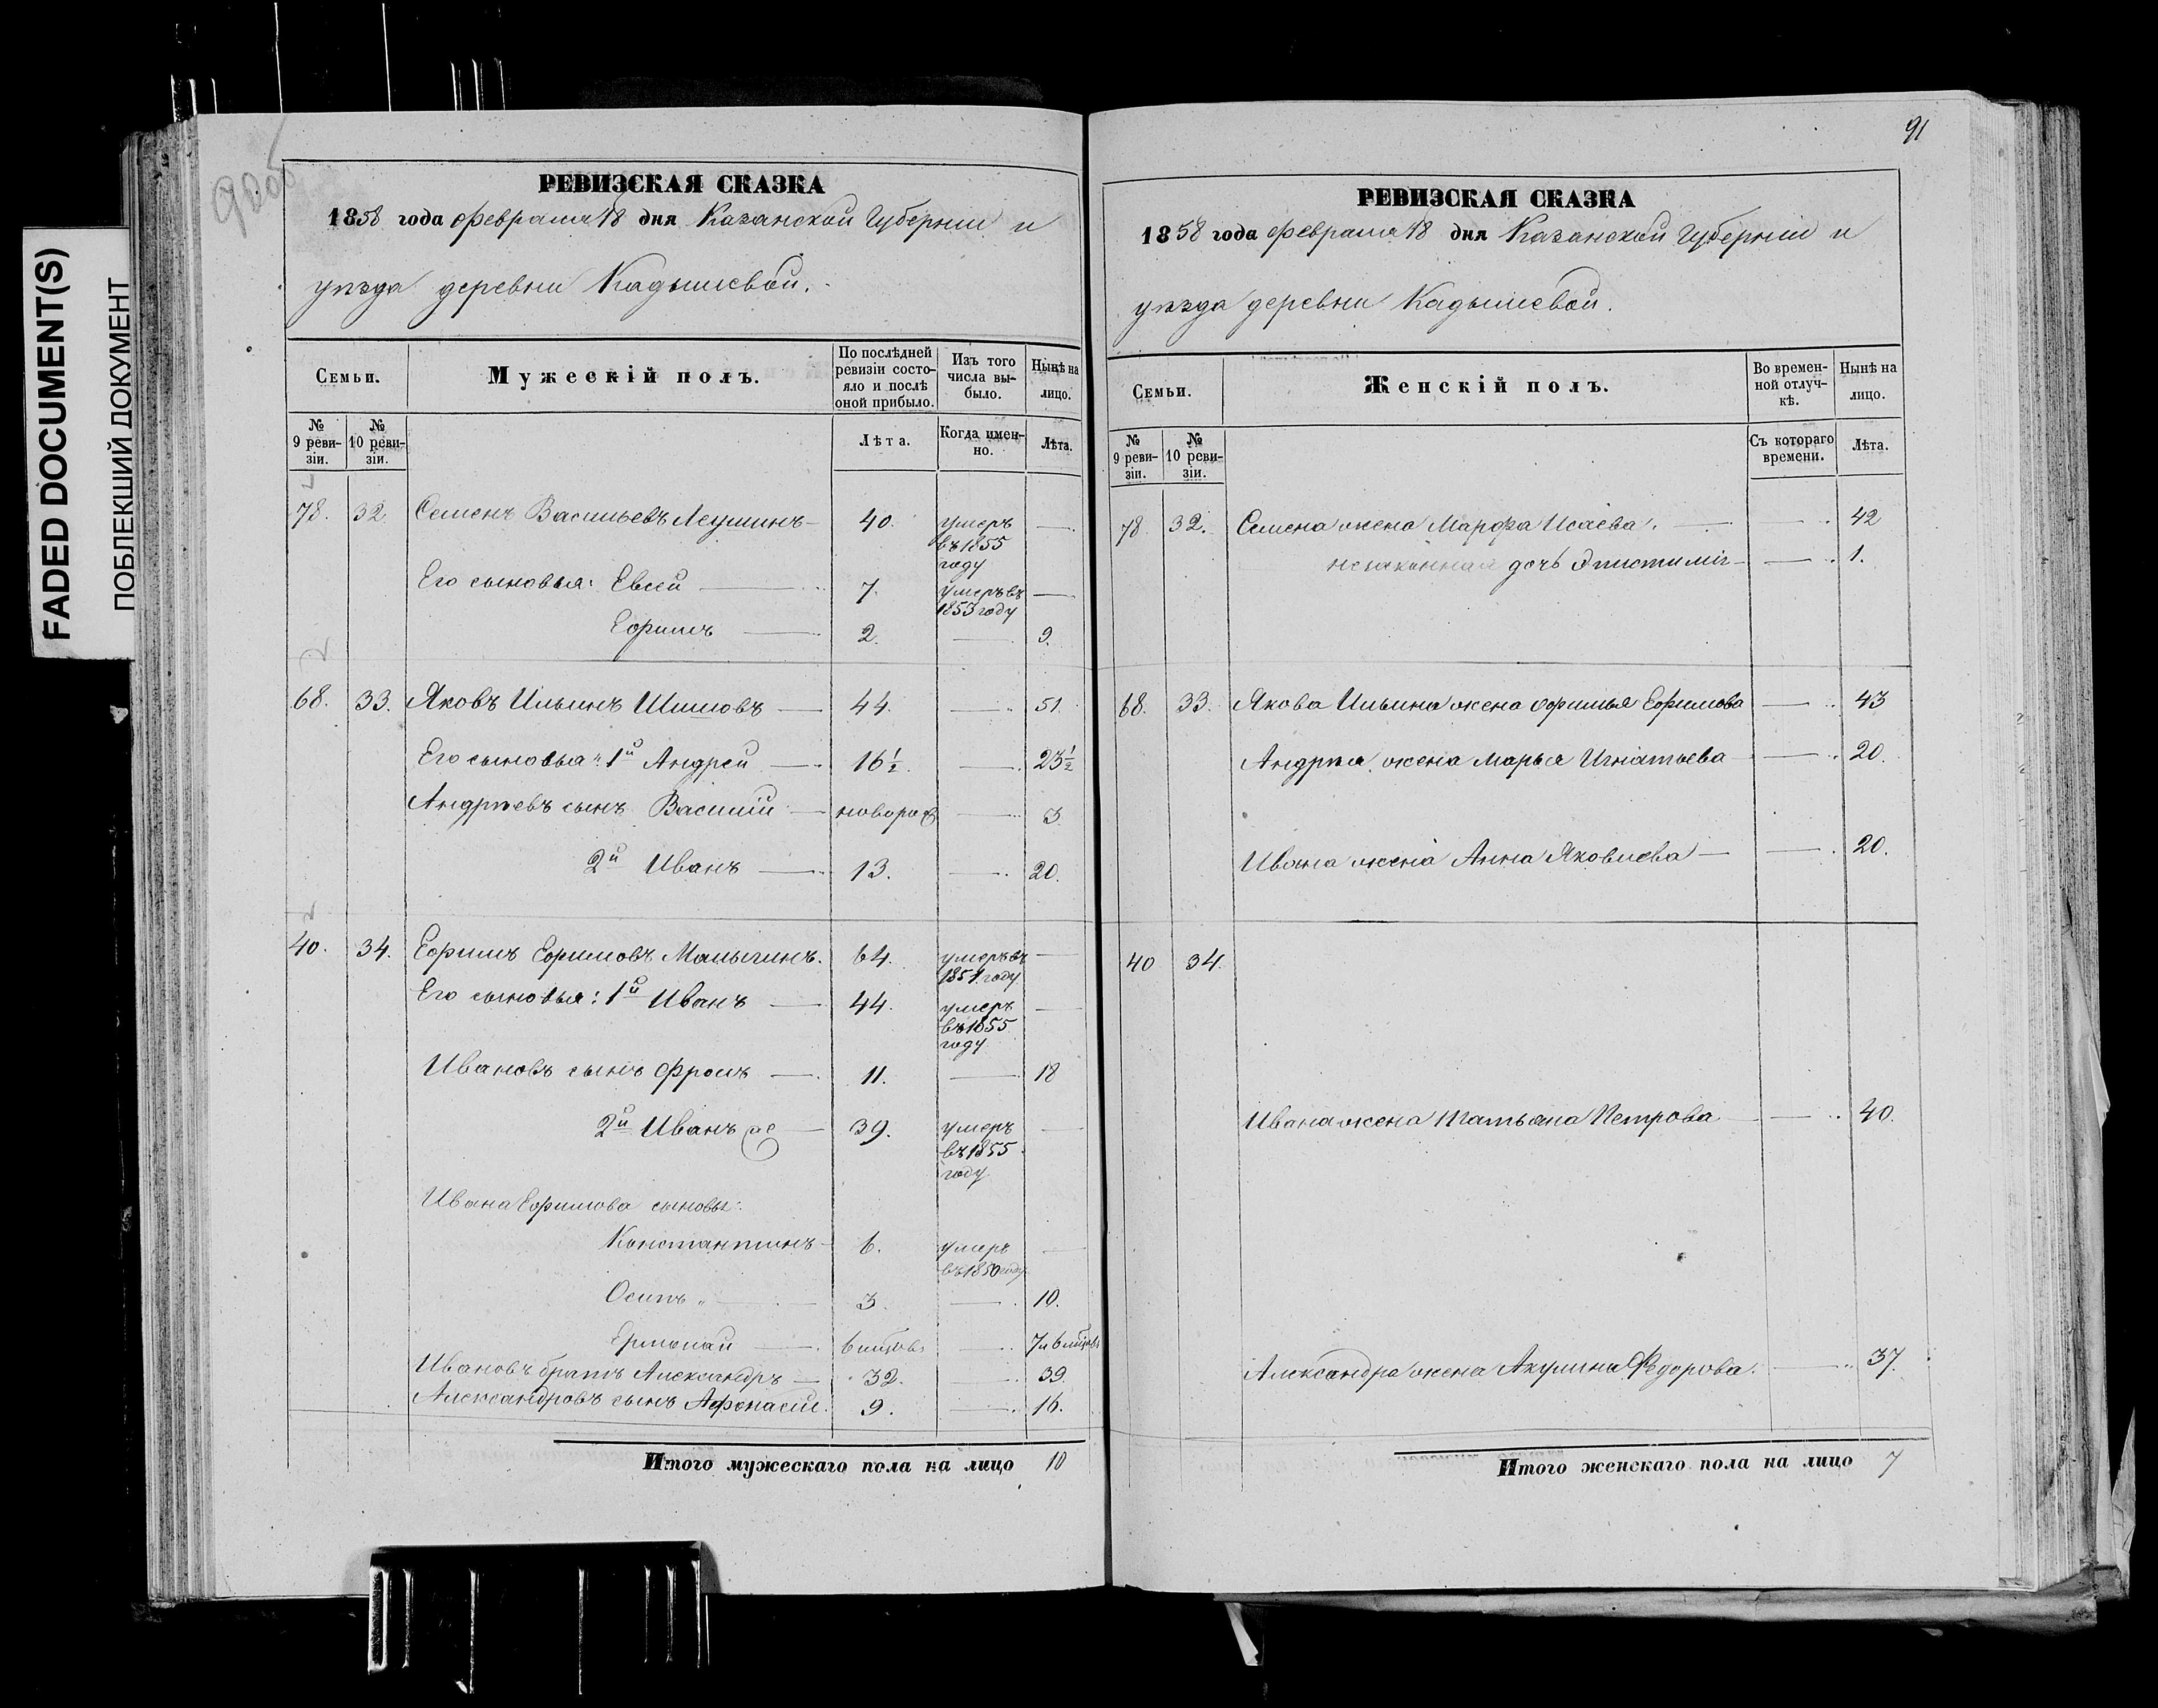 FADED DOCUMENT(S)
ПОБЛЕКШИЙ ДОКУМЕНТ
РЕВИЗСКАЯ СКАЗКА
1858 года Февраля 18 дня Казанской Губернии и
уѣзда деревни Кадышевой.
Семьи.
Мужескій полъ.
По послѣдней ревизіи состояло и послѣ оной прибыло.
Изъ того числа выбыло.
Нынѣ на лицо.
№ 9 ревизіи.
№ 10 ревизіи.
Лѣта.
Когда именно.
Лѣта.
78. 32 Семенъ Васильевъ Леушинъ 40. умеръ въ 1855 году
Его сыновья: Евсей 7. умеръ въ 1855 году
Ефимъ 2. 9.
68. 33. Яковъ Ильинъ Шиловъ 44. 51.
Его сыновья: 1й Андрей 16½. 23½
Андреевъ сынъ Василій новорож 3
2й Иванъ 13. 20.
40. 34. Ефимъ Ефимовъ Малыгинъ. 64. умеръ въ 1851 году
Его сыновья: 1й Иванъ 44. умеръ въ 1855 году
Ивановъ сынъ Фролъ 11. 18
2й Иванъ же 39. умеръ въ 1855 году
Ивана Ефимова сыновья:
Константинъ 6. умеръ въ 1850 году
Осипъ 3. 10.
Ермолай 6 мѣсов. 7 и 6 мѣсов
Ивановъ братъ Александръ 32. 39.
Александровъ сынъ Афонасій. 9. 16.
Итого мужескаго пола на лицо 10
91
РЕВИЗСКАЯ СКАЗКА
1858 года Февраля 18 дня Казанской Губерніи и
уѣзда деревни Кадышевой.
Семьи.
Женскій полъ.
Во временной отлучкѣ.
Нынѣ на лицо.
№ 9 ревизіи.
№ 10 ревизіи.
Съ котораго времени.
Лѣта.
78. 32. Семена жена Марфа Исаева. 42
незаконная дочь Эпистимія 1.
68. 33. Якова Ильина жена Офимья Ефимова 43
Андрея жена Марья Игнатьева 20.
Ивана жена Анна Яковлева 20.
40 34.
Ивана жена Татьяна Петрова 40.
Александра жена Акулина Федорова. 37.
Итого женскаго пола на лицо 7